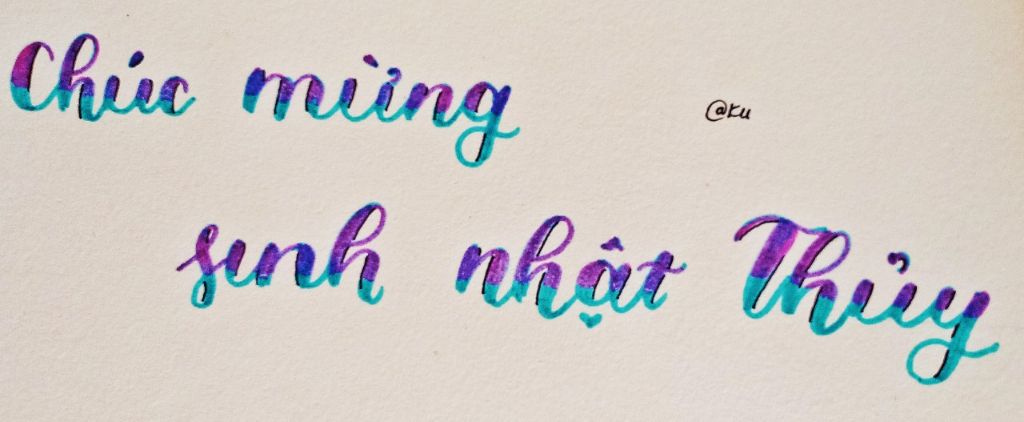 Chúc mừng
@KU
sinh nhật Thủy